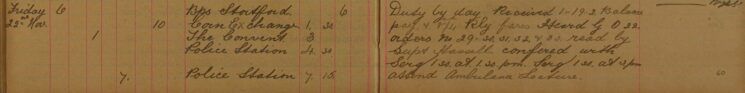 Friday 6 Bps Stortford. 6 Duty by day. Received 1-19-2 Balance
23rd Nov. 10 Corn Exchange 1. 30 pay & Rly fares Heard G O 22
1 The Convent 3 orders No 29. 30, 31, 32, & 33. read by
Police Station 4. 30 Supt conferred with
Serg 1 30. at 1.30 pm. Serg 1 30. at pm
7. Police Station 7. 15. attend Ambulance Lecture.
60